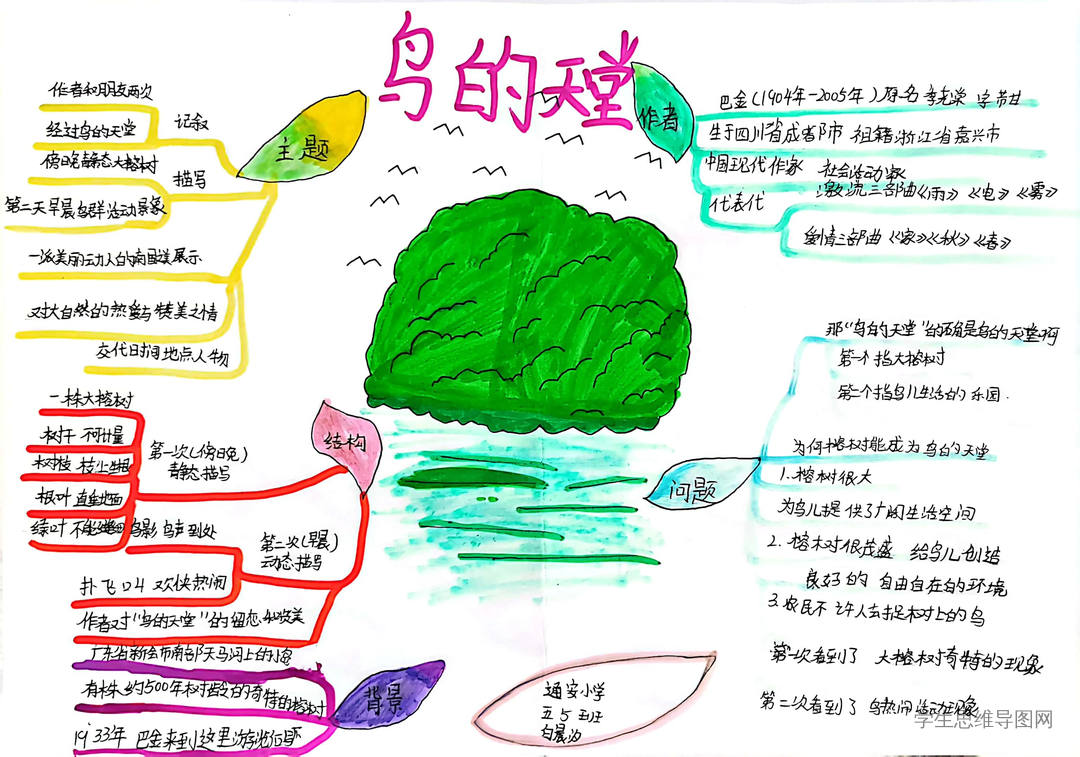 鸟的天堂
主题
记叙
作者和朋友两次
经过鸟的天堂
描写
傍晚静态大榕树
第二天早晨鸟群活动景象
一派美丽动人的南国 展示
对大自然的热爱与赞美之情
交代时间地点人物
作者
巴金(1904年-2005年)原名李尧棠 字芾甘
生于四川省成都市 祖籍浙江省嘉兴市
中国现代作家 社会活动家
代表代
激流三部曲《雨》《电》《雾》
爱情三部曲《家》《秋》《春》
结构
第一次(傍晚)
静态描写
一株大榕树
树干 不可计量
树枝 枝上生根
根叶 直垂地面
绿叶
第二次(早晨)
动态描写
鸟影 鸟声到处
扑飞口叫 欢快热闹
作者对"鸟的天堂"的留恋和赞美
问题
那"鸟的天堂"的确是鸟的天堂啊
第一个指大榕树
第二个指鸟儿生活的乐园.
为何榕树能成为鸟的天堂
1.榕树很大
为鸟儿提供了广阔生活空间
2.榕树很茂盛 给鸟儿创造
良好的 自由自在的环境
3.农民不许人去捉树上的鸟
第一次看到了 大榕树奇特的现象
第二次看到了 鸟热闹活动
背景
广东省新会市南部天马河上的小岛
有株约500年树龄的奇特的榕树
1933年 巴金来到这里游览
通安小学
五5班
白晨汐
学生思维导图网